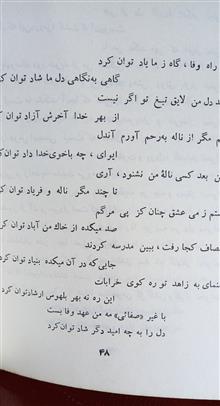 راه وفا ، گاه ز ما یاد توان کرد
گاهی به‌نگاهی دل ما شاد توان کر
د دل من لایق تیغ تو اگر نیست
از بهر خدا آخرش آزاد توان ک
م مگر از ناله به‌رحم آورم آندل
ایوای ، چه باخوی‌خدا داد توان‌کر
ن بعد کسی نالهٔ من نشنود ، آری
تا چند مگر ناله و فریاد توان کر
ستم ز می عشق چنان کز پی مرگم
صد میکده از خاك من آباد توان کر
صاف کجا رفت ، ببین مدرسه کردند
جایی‌که در آن میکده بنیاد توان‌کرد
هنمای به زاهد تو ره کوی خرابات
این ره نه بهر بلهوس ارشادتوان‌کرد
با غیر «صفائی» مه من عهد وفا بست
دل را به چه امید دگر شاد توان‌کرد
۴۸